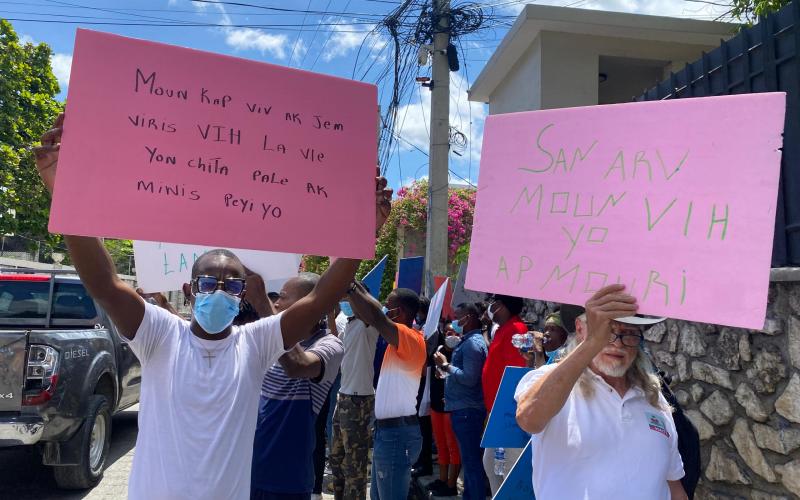 Moun kap viv ak jem
viris VIH La vle
yon chita pale ak
minis peyi yo
SAN ARV
MOUN VIH
YO
AP MOURI
DIESEL